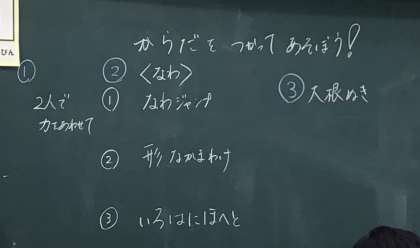 びん
からだを つかって あそぼう！
①
2人で
力をあわせて
② 〈なわ〉
① なわジャンプ
② 形 なかまわけ
③ いろはにほへと
③ 大根ぬき